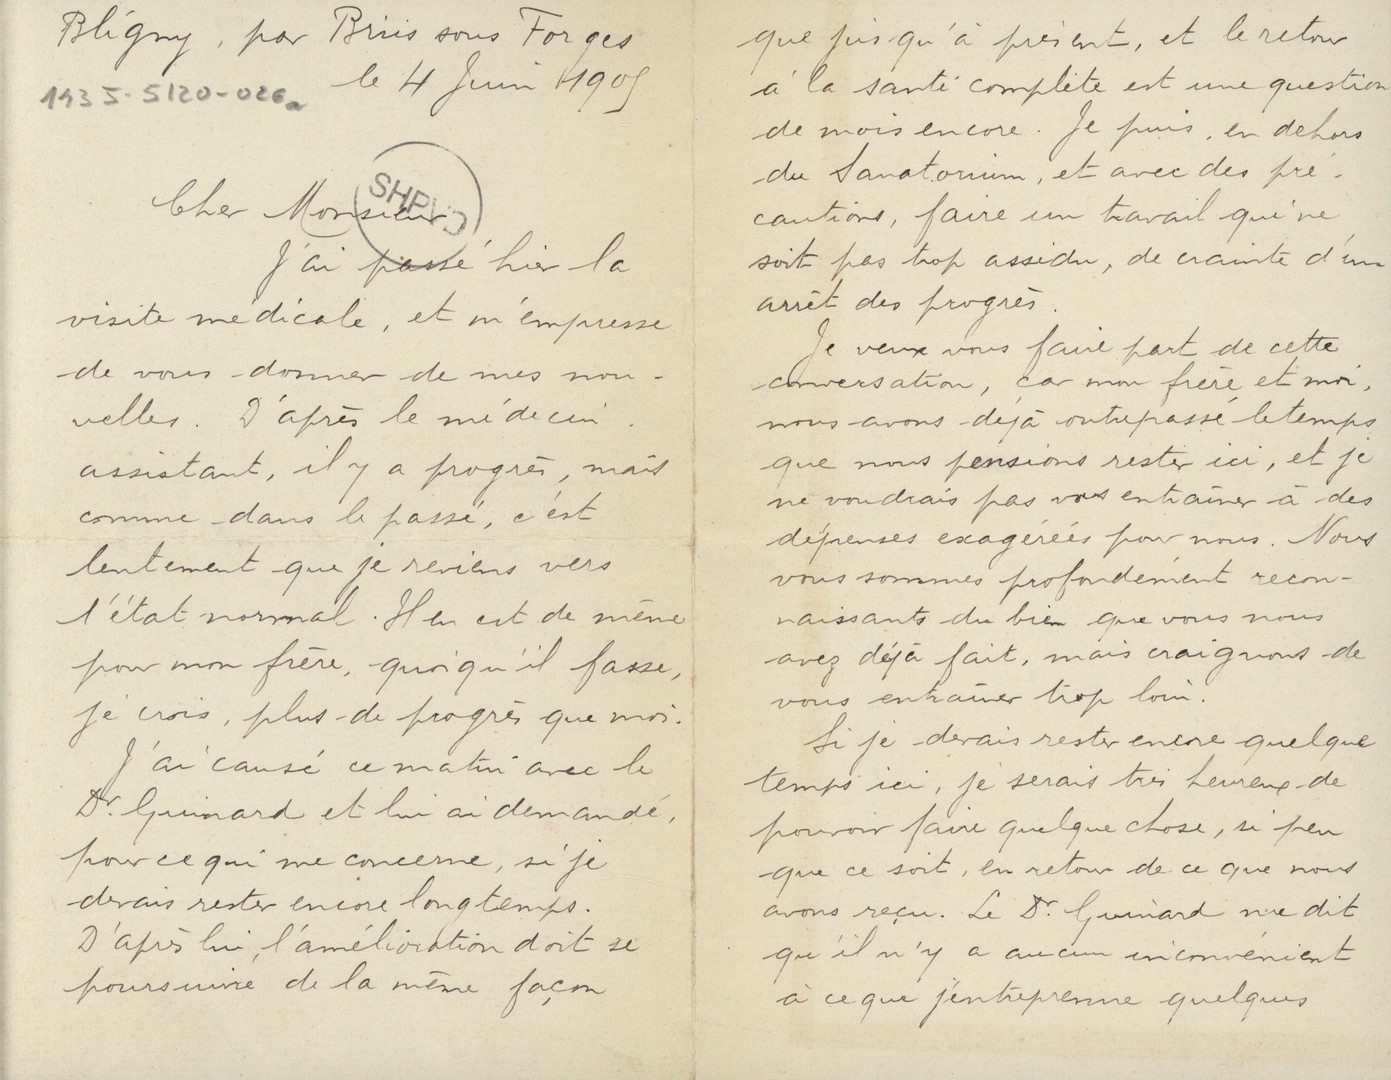 Bligny, par Briis sous Forges
le 4 Juin 1905
1435-5120-026a
SHPVD
Cher Monsieur
J'ai passé hier la
visite médicale, et m'empresse
de vous donner de mes nou-
velles. D'après le médecin
assistant, il y a progrès, mais
comme dans le passé, c'est
lentement que je reviens vers
l'état normal. Il en est de même
pour mon frère, quoiqu'il fasse,
je crois, plus de progrès que moi.
J'ai causé ce matin avec le
Dr. Guinard et lui ai demandé,
pour ce qui me concerne, si je
devais rester encore longtemps.
D'après lui, l'amélioration doit se
poursuivre de la même façon
que jusqu'à présent, et le retour
à la santé complète est une question
de mois encore. Je puis, en dehors
du Sanatorium, et avec des pré-
cautions, faire un travail qui ne
soit pas trop assidu, de crainte d'un
arrêt des progrès.
Je veux vous faire part de cette
conversation, car mon frère et moi,
nous avons déjà outrepassé le temps
que nous pensions rester ici, et je
ne voudrais pas vous entraîner à des
dépenses exagérées pour nous. Nous
vous sommes profondément recon-
naissants du bien que vous nous
avez déjà fait, mais craignons de
vous entraîner trop loin.
Si je devais rester encore quelque
temps ici, je serais très heureux de
pouvoir faire quelque chose, si peu
que ce soit, en retour de ce que nous
avons reçu. Le Dr. Guinard me dit
qu'il n'y a aucun inconvénient
à ce que j'entreprenne quelques